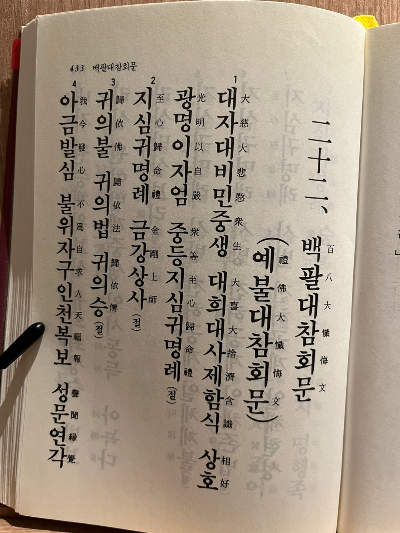 433 백팔대참회문
二十二、 백팔대참회문
百八大懺悔文
(예불대참회문)
禮佛大懺悔文
1
대자대비민중생 대희대사제함식 상호
大慈大悲愍衆生 大喜大捨濟含識 相好
광명이자엄 중등지심귀명례(절)
光明以自嚴 衆等至心歸命禮
2
지심귀명례 금강상사(절)
至心歸命禮 金剛上師
3
귀의불 귀의법 귀의승(절)
歸依佛 歸依法 歸依僧
4
아금발심 불위자구인천복보 성문연각
我今發心 不爲自求人天福報 聲聞緣覺